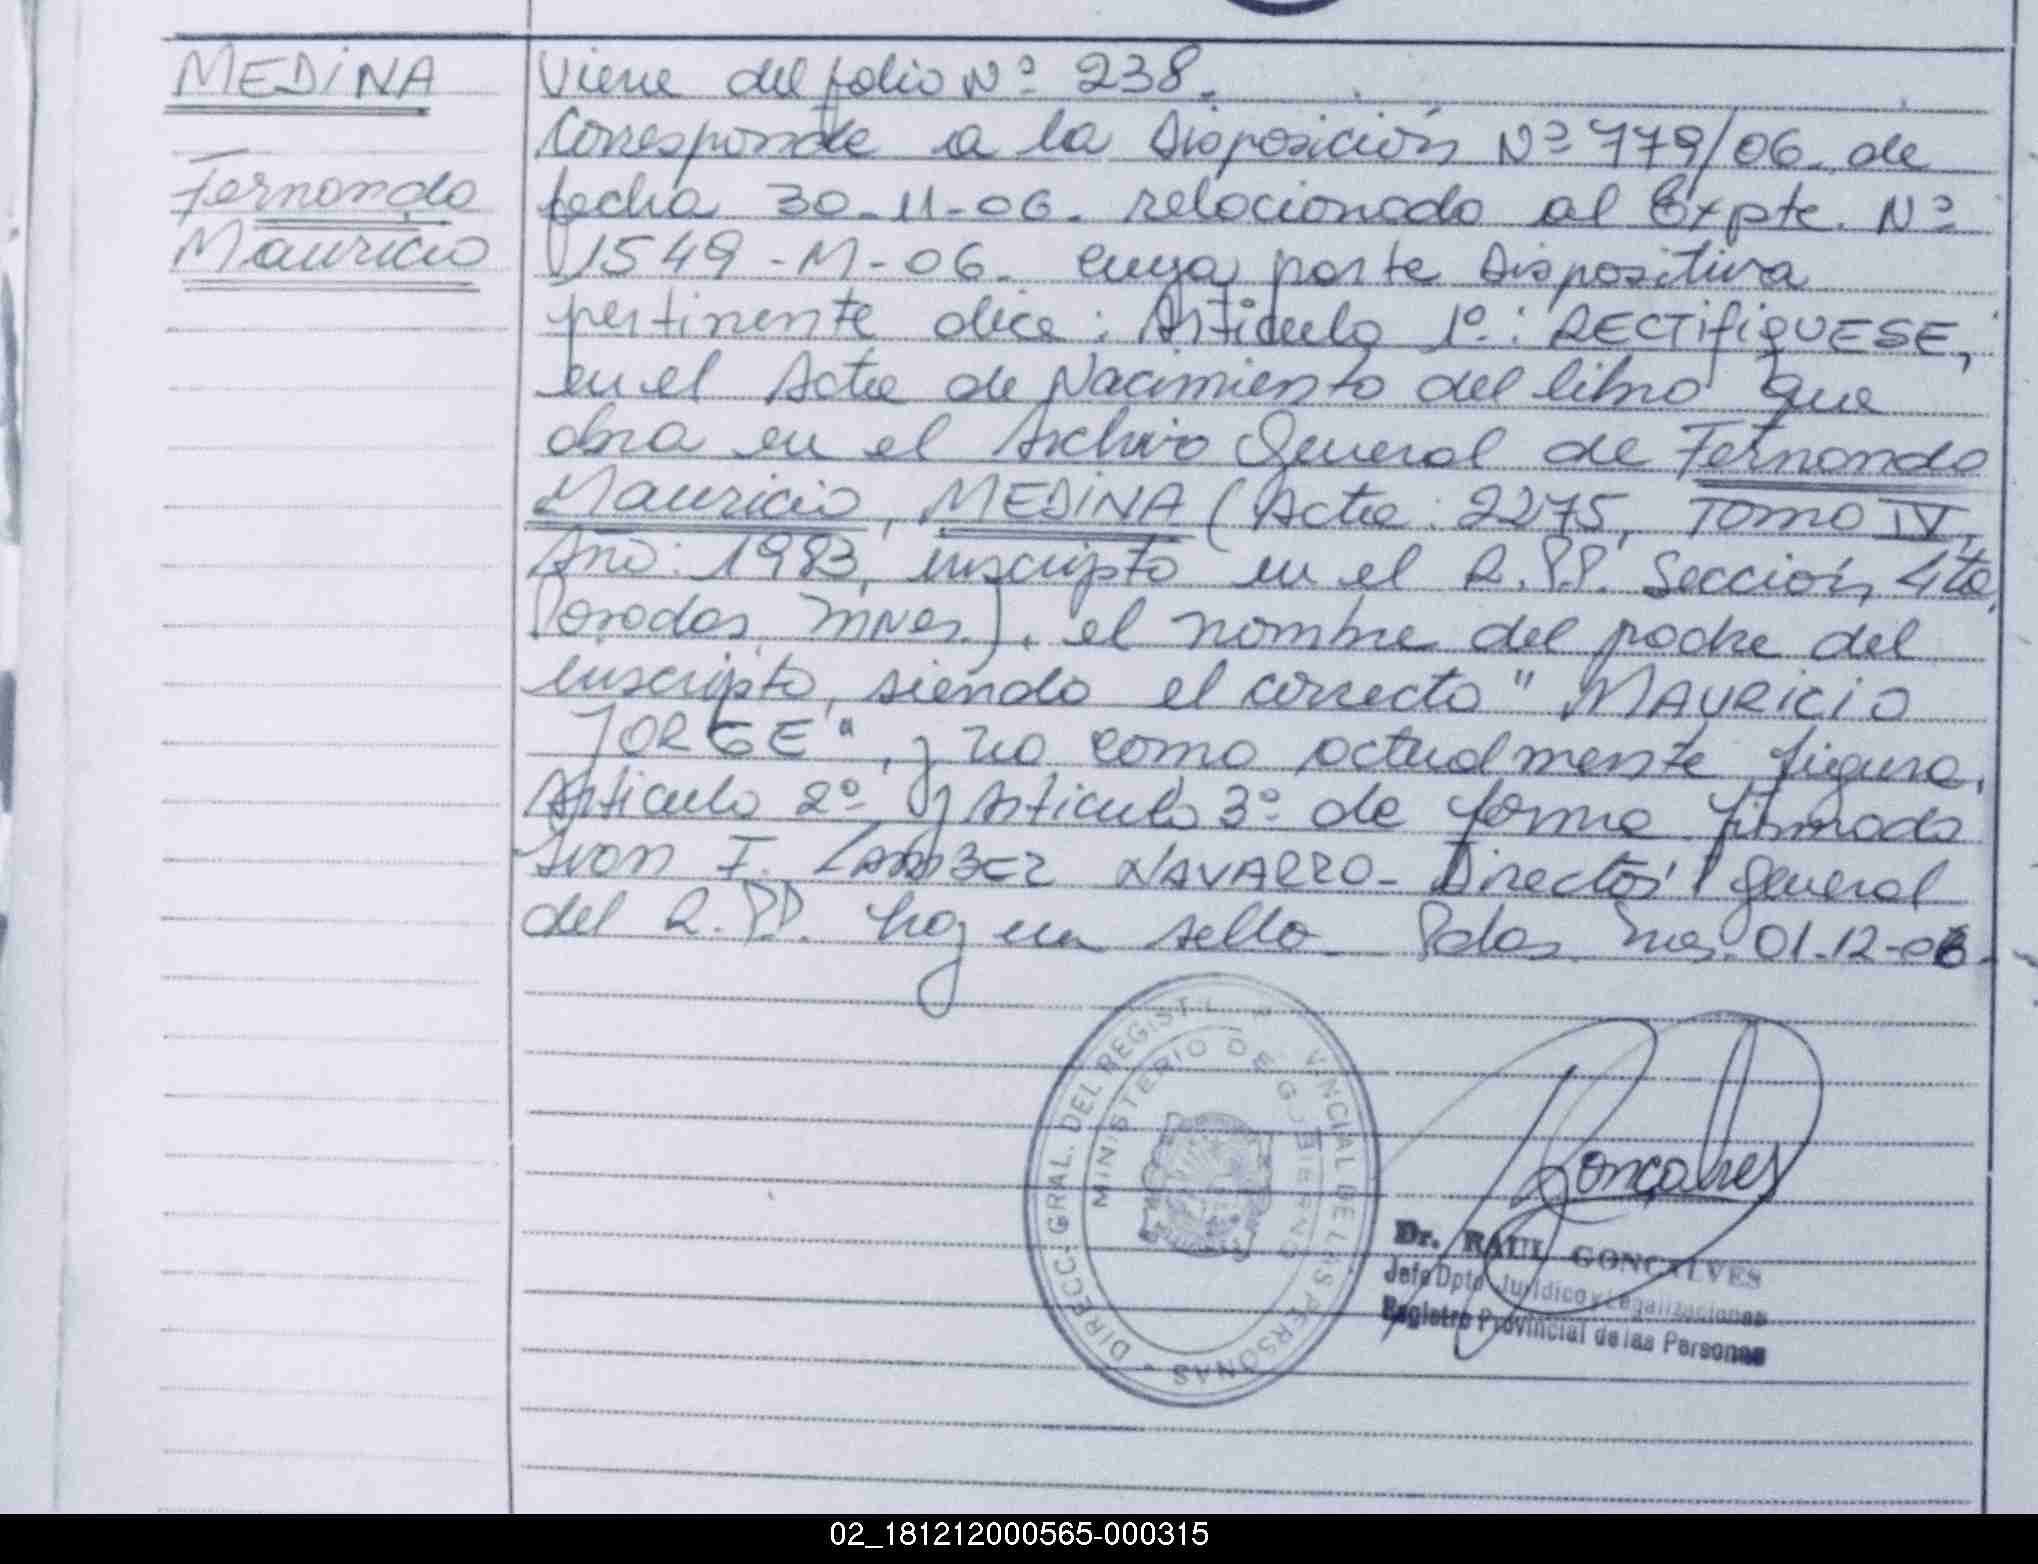 MEDiNA
Fernando
Mauricio
Viene del folio Nº 238.
Corresponde a la Disposición Nº 779/06. de
fecha 30-11-06. relacionado al Expte. Nº
1549-M-06. cuya parte Dispositiva
pertinente dice: Articulo 1º: RECTifiQUESE,
en el Acta de Nacimiento del libro que
obra en el Archivo General de Fernando
Mauricio, MEDINA (Acta: 2275, Tomo IV,
Año: 1983, inscripto en el R.P.P. Sección 4ta,
Posadas, Mnes.), el nombre del padre del
inscripto, siendo el correcto "MAURiCiO
JORGE", y no como actualmente figura.
Articulo 2º y Articulo 3º de forma firmado
Ivan I. NAVARRO- Director General
del R.P.P. hay un sello- Pdas. Mnes. 01-12-06-
DIRECC. GRAL. DEL REGIST VINCIAL DE LAS PERSONAS
MINISTERIO DE GOBIERNO
Gonçalves
Dr. RAUL GONCALVES
Jefe Dpto Jurídico y Legalizaciones
Registro Provincial de las Personas
02_181212000565-000315